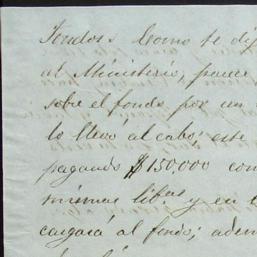 Fondos Como te di
al Ministerio, parece
sobre el fondo por un
lo llevo al cabo; este
pagando $150,000 con
mismas libas y en
cargará al fondo; adem